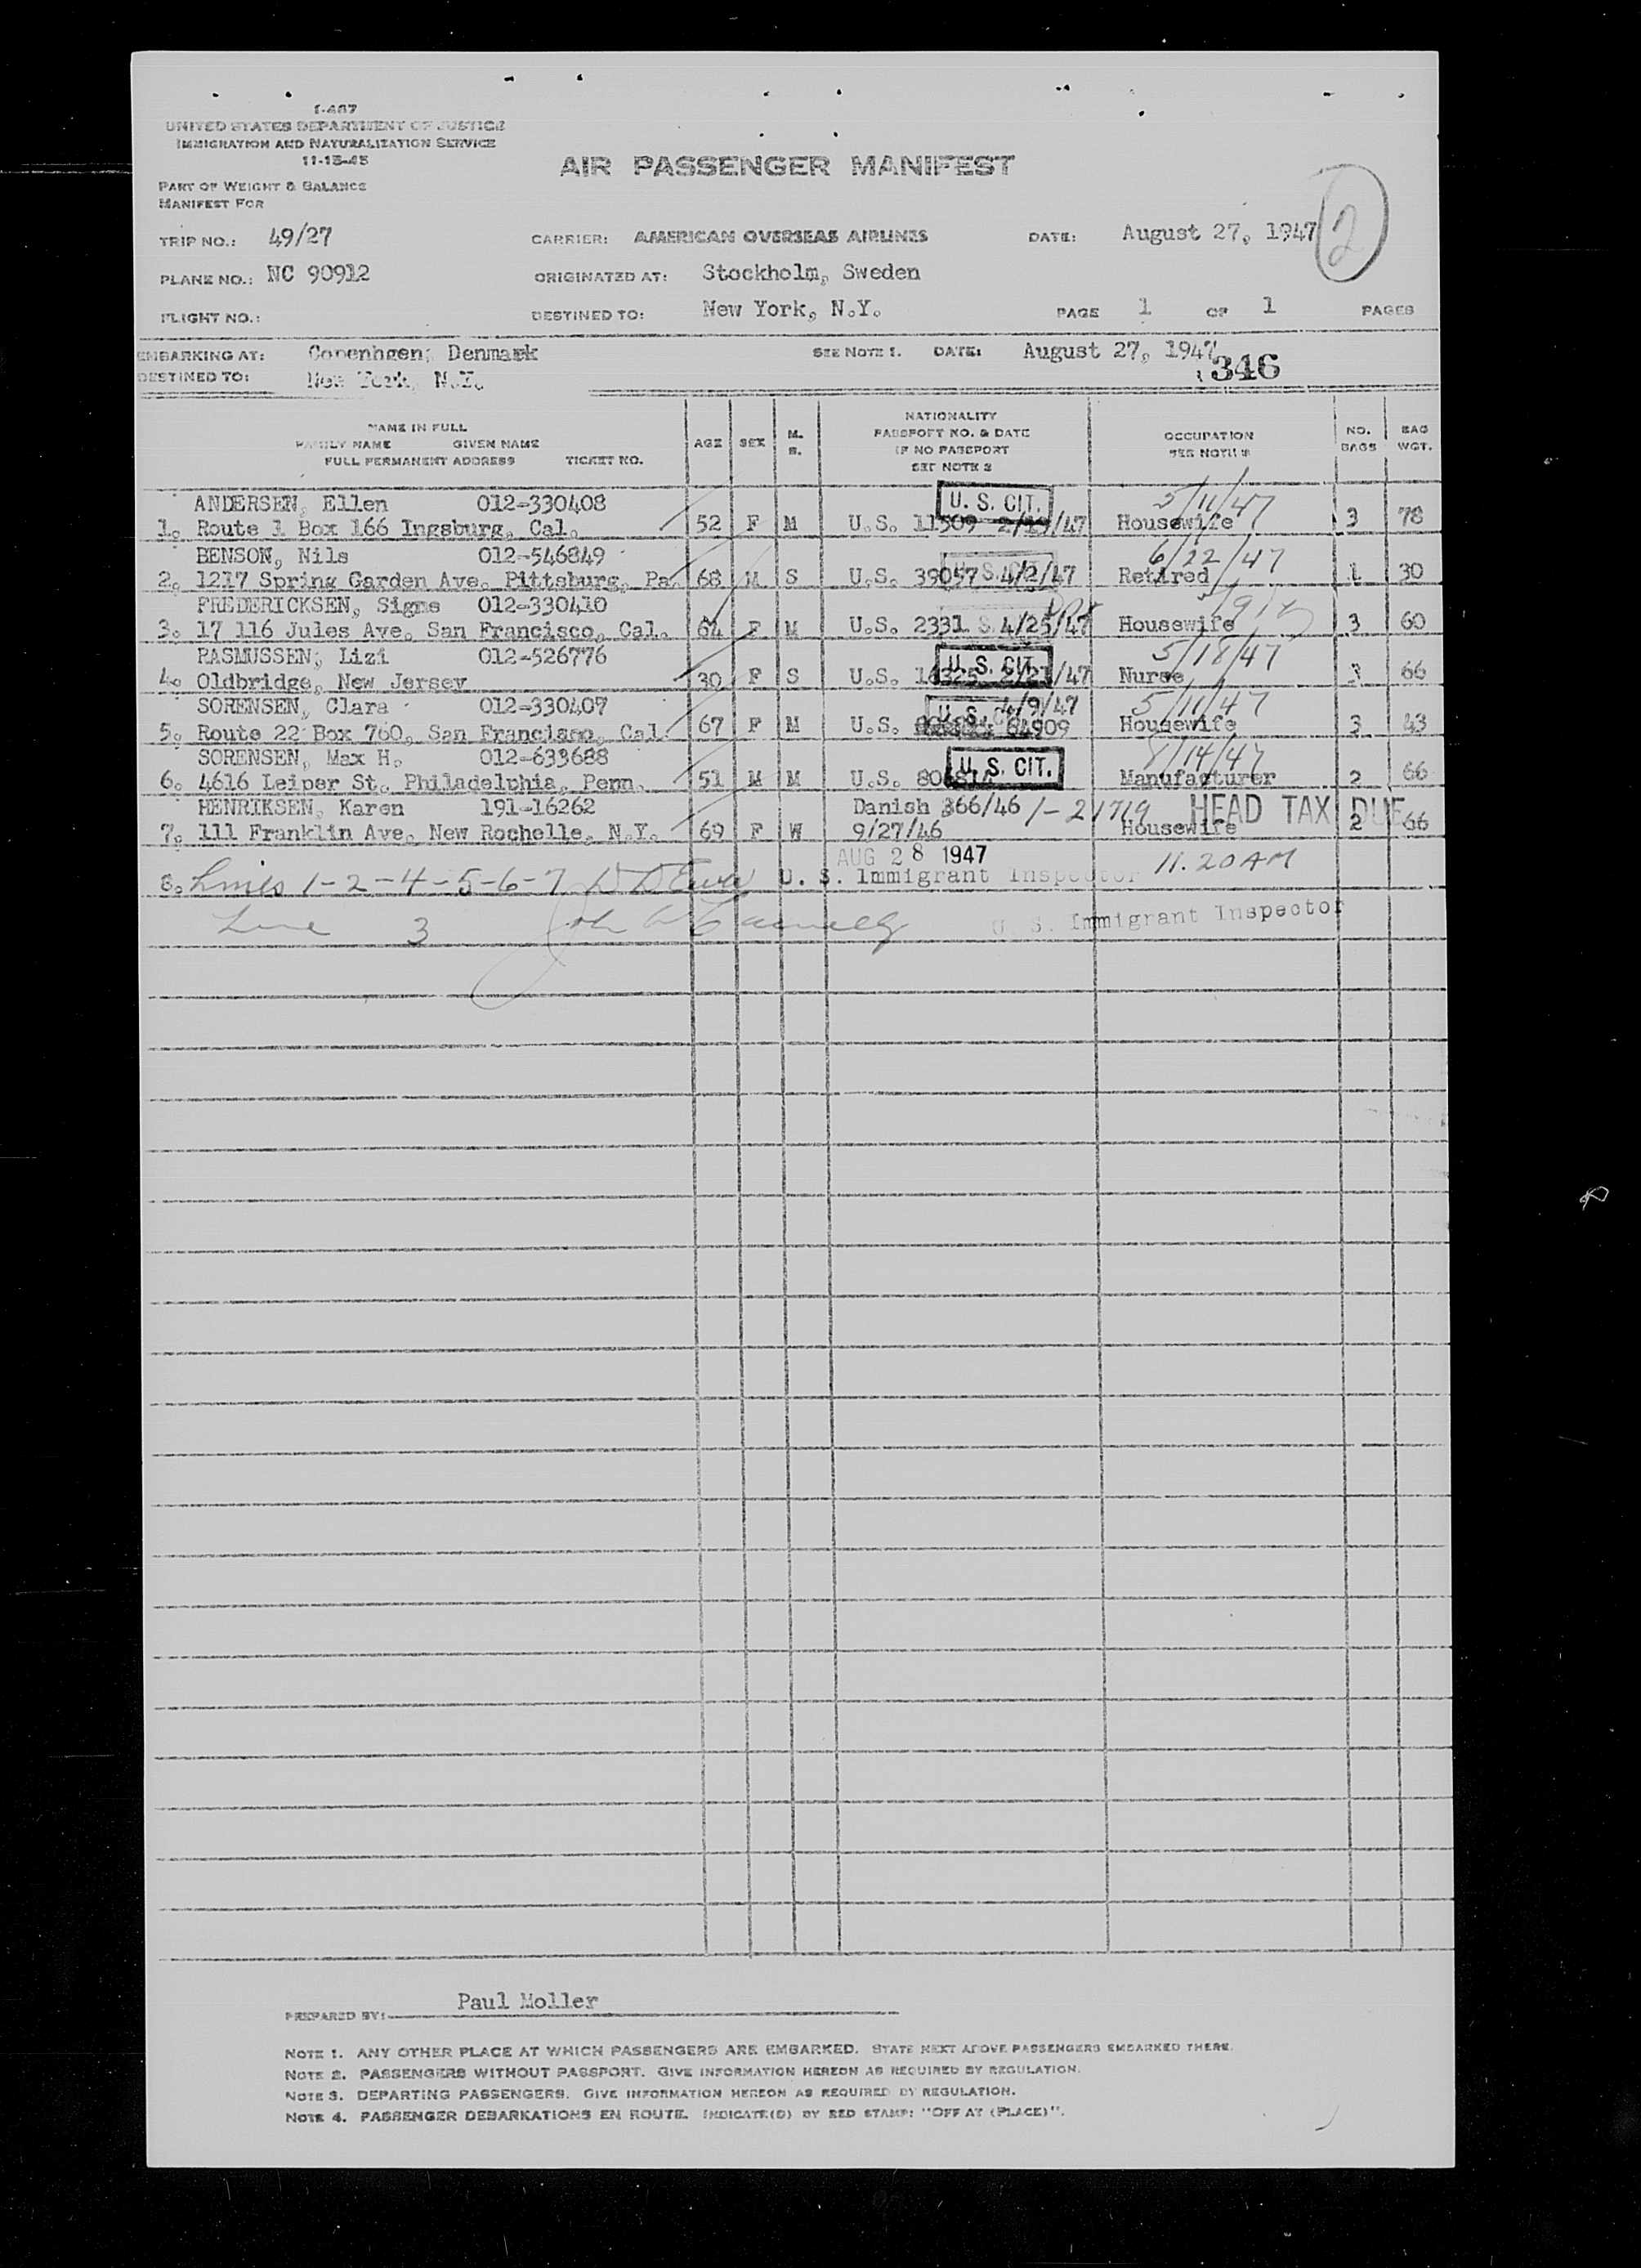 I-467
UNITED STATES DEPARTMENT OF JUSTICE
IMMIGRATION AND NATURALIZATION SERVICE
11-15-45
AIR PASSENGER MANIFEST
PART OF WEIGHT & BALANCE
MANIFEST FOR
2
TRIP NO.: 49/27 CARRIER: AMERICAN OVERSEAS AIRLINES DATE: August 27, 1947
PLANE NO.: NC 90912 ORIGINATED AT: Stockholm, Sweden
FLIGHT NO.: DESTINED TO: New York, N.Y. PAGE 1 OF 1 PAGES
EMBARKING AT: Copenhgen, Denmark SEE NOTE 1. DATE: August 27, 1947
DESTINED TO: New York, N.Y. 346
NAME IN FULL
FAMILY NAME GIVEN NAME
FULL PERMANENT ADDRESS TICKET NO.
AGE SEX M. S.
NATIONALITY
PASSPORT NO. & DATE
IF NO PASSPORT
SEE NOTE 2
OCCUPATION
SEE NOTE
NO. BAGS
BAG WGT.
ANDERSEN, Ellen 012-330408 U. S. CIT. 5/11/47
1. Route 1 Box 166 Ingsburg, Cal. 52 F M U.S. 11509 /47 Housewife 3 78
BENSON, Nils 012-546849 6/22/47
2. 1217 Spring Garden Ave. Pittsburg, Pa. 68 M S U.S. 39057 4/2/47 Retired 1 30
FREDERICKSEN, Signe 012-330410
3. 17 116 Jules Ave. San Francisco, Cal. 64 F M U.S. 2331 4/25/47 Housewife 3 60
RASMUSSEN, Lizi 012-526776 U. S. CIT. 5/18/47
4. Oldbridge, New Jersey 30 F S U.S. 16325 /47 Nurse 3 66
SORENSEN, Clara 012-330407 U. S. 4/9/47 5/11/47
5. Route 22 Box 760, San Francisco, Cal. 67 F M U.S. 84909 Housewife 3 43
SORENSEN, Max H. 012-633688 U. S. CIT. 8/14/47
6. 4616 Leiper St. Philadelphia, Penn. 51 M M U.S. Manufacturer 2 66
HENRIKSEN, Karen 191-16262 Danish 366/46 1-21719 HEAD TAX DUE
7. 111 Franklin Ave. New Rochelle, N.Y. 69 F W 9/27/46 Housewife 2 66
AUG 28 1947 11.20 AM
8. Lines 1-2-4-5-6-7 U. S. Immigrant Inspector
Line 3 John U. S. Immigrant Inspector
PREPARED BY: Paul Moller
NOTE 1. ANY OTHER PLACE AT WHICH PASSENGERS ARE EMBARKED. STATE NEXT ABOVE PASSENGERS EMBARKED THERE.
NOTE 2. PASSENGERS WITHOUT PASSPORT. GIVE INFORMATION HEREON AS REQUIRED BY REGULATION.
NOTE 3. DEPARTING PASSENGERS. GIVE INFORMATION HEREON AS REQUIRED BY REGULATION.
NOTE 4. PASSENGER DEBARKATIONS EN ROUTE. INDICATE(D) BY RED STAMP: "OFF AT (PLACE)".